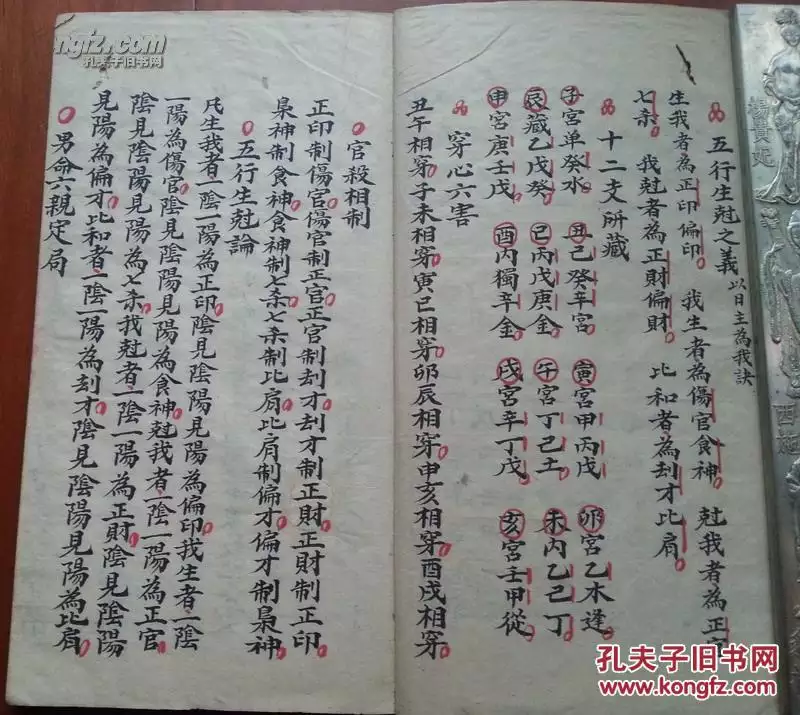 五行生尅之義 以日主為我訣
生我者為正印偏印 我生者為傷官食神 尅我者為正官
七杀 我尅者為正財偏財 比和者為刦才比肩
十二支所藏
子宮单癸水 丑己癸辛宮 寅宮甲丙戊 卯宮乙木逢
辰藏乙戊癸 巳丙戊庚金 午宮丁己土 未丙乙己丁
申宮庚壬戊 酉丙獨辛金 戌宮辛丁戊 亥宮壬甲從
穿心六害
丑午相穿子未相穿寅巳相穿卯辰相穿申亥相穿酉戌相穿
官殺相制
正印制傷官傷官制正官正官制刦才刦才制正財正財制正印
梟神制食神食神制七杀七杀制比肩比肩制偏才偏才制梟神
五行生尅論
凡生我者一陰一陽為正印陰見陰陽見陽為偏印我生者一陰
一陽為傷官陰見陰陽見陽為食神尅我者一陰一陽為正官
陰見陰陽見陽為七杀我尅者一陰一陽為正財陰見陰陽
見陽為偏才比和者一陰一陽為刦才陰見陰陽見陽為比肩
男命六親定局
楊貴妃
西施
kongfz.com
孔夫子旧书网
孔夫子旧书网
KONGFZ.COM